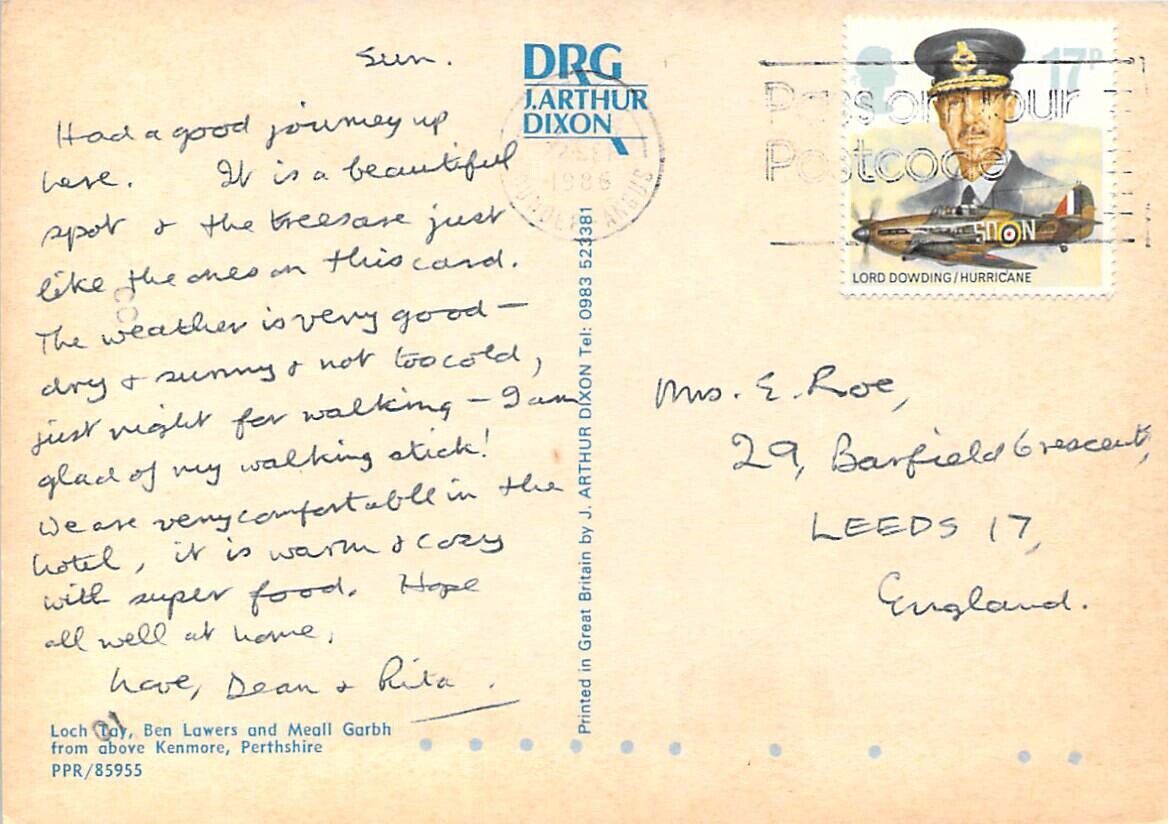 Sun.
Had a good journey up
here. It is a beautiful
spot & the trees are just
like the ones on this card.
The weather is very good –
dry & sunny & not too cold,
just right for walking – I am
glad of my walking stick!
We are very comfortable in the
hotel, it is warm & cozy
with super food. Hope
all well at home.
Love, Dean & Rita.
Loch Tay, Ben Lawers and Meall Garbh
from above Kenmore, Perthshire
PPR/85955
DRG
J.ARTHUR
DIXON
Printed in Great Britain by J. ARTHUR DIXON Tel: 0983 523381
1986
ANGUS
Pass on Your
Postcode
17P
SD N
LORD DOWDING/HURRICANE
Mrs. E. Roe,
29, Barfield Crescent,
LEEDS 17,
England.